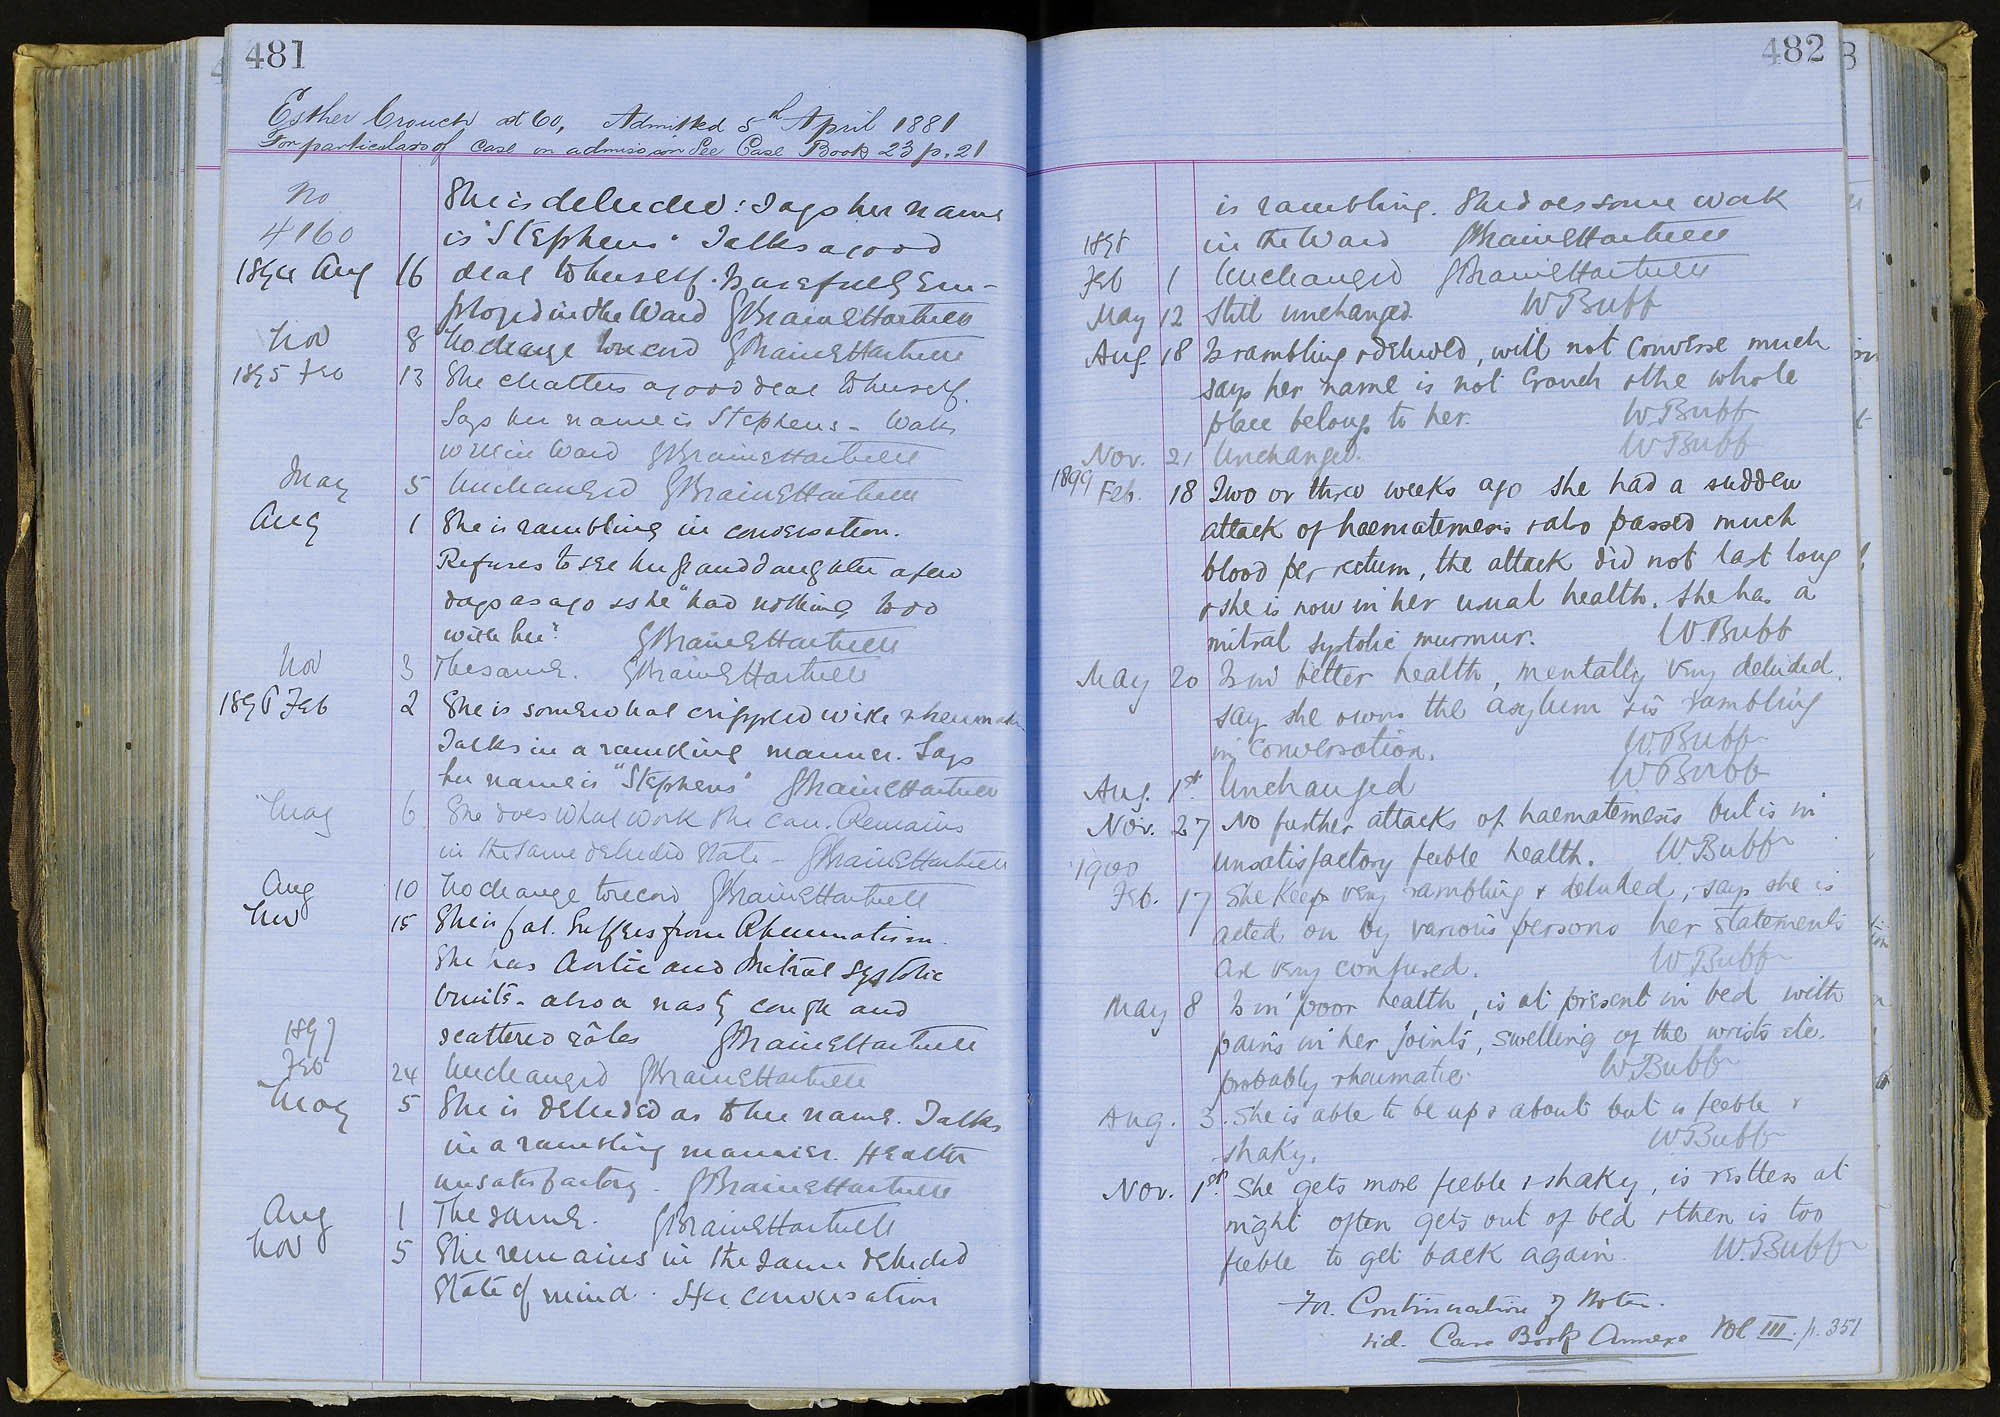 481
Esther Crouch æt 60, Admitted 5th April 1881
For particulars of case on admission See Case Book 23 p. 21
No
4160
She is deluded: Says her name
is "Stephens" Talks a good
1894 Aug 16 deal to herself. Is usefully em-
ployed in the Ward G Braine Hartnell
Nov 8 No change to record G Braine Hartnell
1895 Feb 13 She chatters a good deal to herself.
Says her name is Stephens - Works
well in Ward G Braine Hartnell
May 5 Unchanged G Braine Hartnell
Aug 1 She is rambling in conversation.
Refuses to see her granddaughter a few
days ago as she "had nothing to do
with her". G Braine Hartnell
Nov 3 The same. G Braine Hartnell
1896 Feb 2 She is somewhat crippled with rheumatism
Talks in a rambling manner. Says
her name is "Stephens" G Braine Hartnell
May 6 She does what work she can. Remains
in the same deluded state - G Braine Hartnell
Aug 10 No change to record G Braine Hartnell
Nov 15 She is fat. Suffers from Rheumatism.
She has Aortic and Mitral Systolic
bruits - also a nasty cough and
scattered râles G Braine Hartnell
1897
Feb 24 Unchanged G Braine Hartnell
May 5 She is deluded as to her name. Talks
in a rambling manner. Health
unsatisfactory - G Braine Hartnell
Aug 1 The same. G Braine Hartnell
Nov 5 She remains in the same deluded
state of mind. Her conversation
482
is rambling. She does some work
1898 in the Ward G Braine Hartnell
Feb 1 Unchanged G Braine Hartnell
May 12 Still unchanged. W Bubb
Aug 18 Is rambling & deluded, will not converse much
says her name is not Crouch & the whole
place belongs to her. W. Bubb
Nov. 21 Unchanged. W Bubb
1899 Feb. 18 Two or three weeks ago she had a sudden
attack of haematemesis & also passed much
blood per rectum, the attack did not last long
& she is now in her usual health. She has a
mitral systolic murmur. W. Bubb
May 20 Is in better health, mentally very deluded.
says she owns the asylum & is rambling
in conversation. W. Bubb
Aug. 1st. Unchanged W Bubb
Nov. 27 No further attacks of haematemesis but is in
unsatisfactory feeble health. W Bubb
1900
Feb. 17 She keeps very rambling & deluded, says she is
acted on by various persons her statements
are very confused. W Bubb
May 8 Is in poor health, is at present in bed with
pains in her joints, swelling of the wrists etc.
probably rheumatic. W Bubb
Aug. 3. She is able to be up & about but is feeble &
shaky. W Bubb
Nov. 1st. She gets more feeble & shaky, is restless at
night often gets out of bed & then is too
feeble to get back again. W. Bubb
For Continuation of Notes.
vid. Case Book Annexe Vol III. p. 351